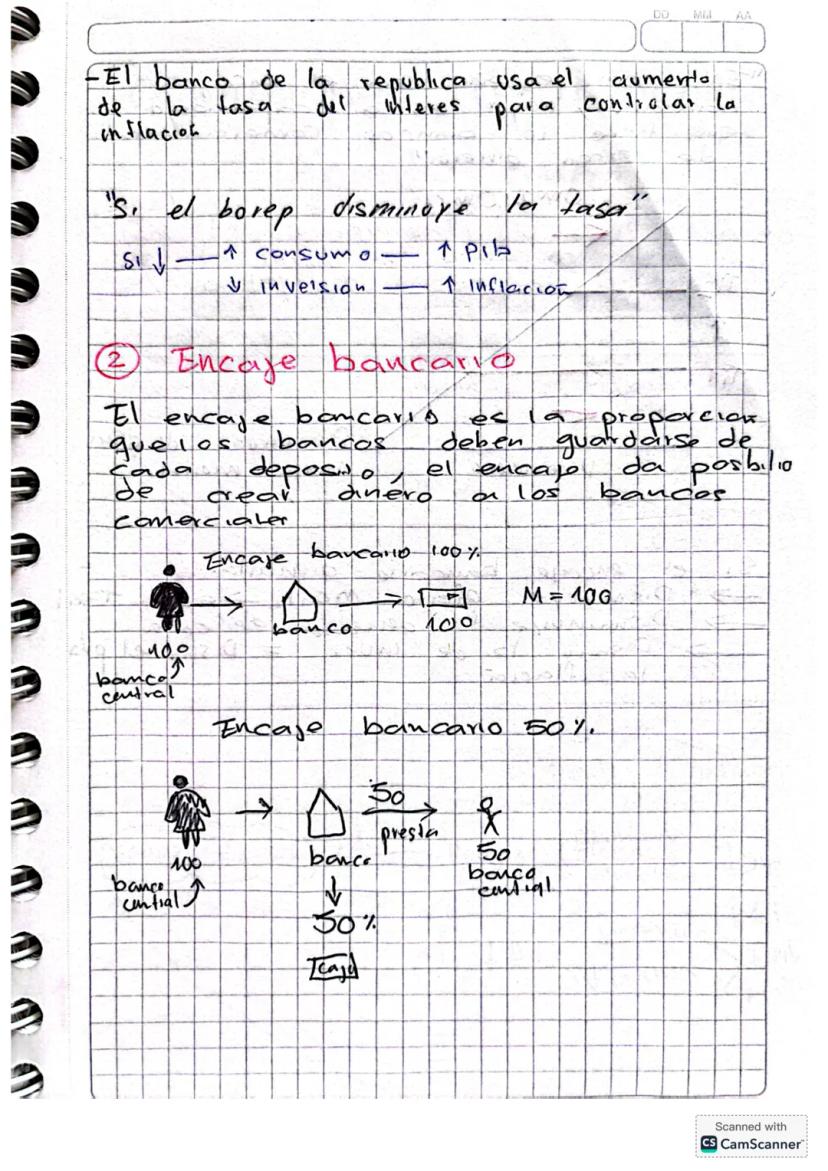 DD MM AA
- El banco de la republica usa el aumento
de la tasa del interes para controlar la
inflacion
"Si el borep disminuye la tasa"
Si ↓ — ↑ consumo — ↑ Pib
↓ inversion — ↑ Inflacion
② Encaje bancario
El encaje bancario es la proporcion
que los bancos deben guardarse de
cada deposito, el encaje da posbilio
de crear dinero a los bancos
comerciales
Encaje bancario 100%
→ banco → 100 M = 100
100
banco
central
Encaje bancario 50%.
50
presta
100 banco 50
banco
central
banco
central
50%
caja
Scanned with
CS CamScanner